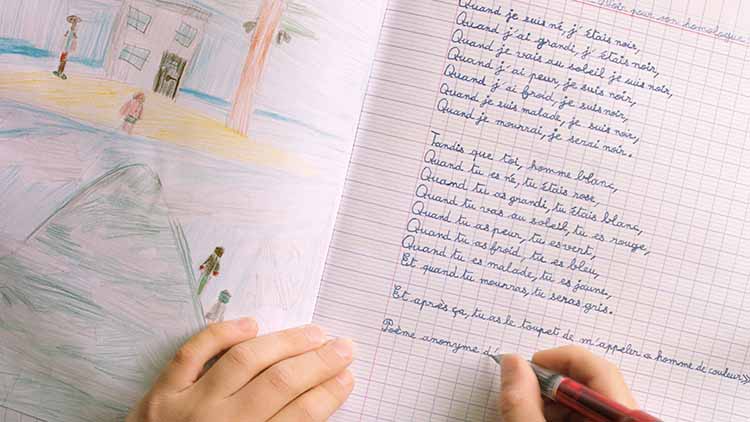 pour son homologue
Quand je suis né, j'étais noir,
Quand j'ai grandi, j'étais noir,
Quand je vais au soleil je suis noir,
Quand j'ai peur, je suis noir,
Quand j'ai froid, je suis noir,
Quand je suis malade, je suis noir,
Quand je mourrai, je serai noir.
Tandis que toi, homme blanc,
Quand tu es né, tu étais rose,
Quand tu as grandi, tu étais blanc,
Quand tu vas au soleil, tu es rouge,
Quand tu as peur, tu es vert,
Quand tu as froid, tu es bleu,
Quand tu es malade, tu es jaune,
Et quand tu mourras, tu seras gris.
Et après ça, tu as le toupet de m'appeler « homme de couleur»
Poème anonyme d'